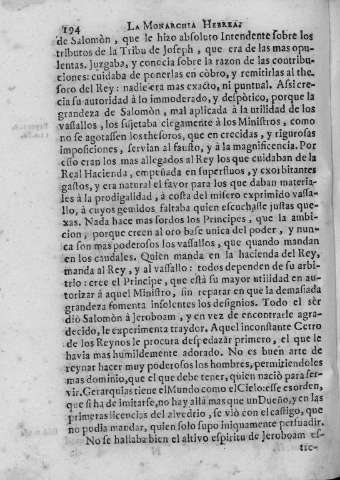 194 LA MONARCHIA HEBREA,
de Salomòn, que le hizo absoluto Intendente sobre los
tributos de la Tribu de Joseph, que era de las mas opu-
lentas. Juzgaba, y conocia sobre la razon de las contribu-
ciones: cuidaba de ponerlas en còbro, y remitirlas al the-
soro del Rey: nadie era mas exacto, ni puntual. Assi cre-
cia su autoridad à lo immoderado, y despòtico, porque la
grandeza de Salomòn, mal aplicada à la utilidad de los
vassallos, los sujetaba ciegamente à los Ministros, como
no se agotassen los thesoros, que en crecidas, y rigurosas
imposiciones, servian al fausto, y à la magnificencia. Por
esso eran los mas allegados al Rey los que cuidaban de la
Real Hacienda, empeñada en superfluos, y exorbitantes
gastos, y era natural el favor para los que daban materia-
les à la prodigalidad, à costa del misero exprimido vassa-
llo, à cuyos gemidos faltaba quien escuchasse justas que-
xas. Nada hace mas sordos los Principes, que la ambi-
cion, porque creen al oro base unica del poder, y nun-
ca son mas poderosos los vassallos, que quando mandan
en los caudales. Quien manda en la hacienda del Rey,
manda al Rey, y al vassallo: todos dependen de su arbi-
trio: cree el Principe, que està su mayor utilidad en au-
torizar à aquel Ministro, sin reparar en que la demasiada
grandeza fomenta insolentes los designios. Todo el sèr
diò Salomòn à Jeroboam, y en vez de encontrarle agra-
decido, le experimenta traydor. Aquel inconstante Cetro
de los Reynos le procura despedazar primero, el que le
havia mas humildemente adorado. No es buen arte de
reynar hacer muy poderosos los hombres, permitiendoles
mas dominio, que el que debe tener, quien naciò para ser-
vir. Gerarquias tiene el Mundo como el Cielo: esse es orden,
que si ha de imitarse, no hay allà mas que un Dueño, y en las
primeras licencias del alvedrio, se viò con el castigo, que
no podia mandar, quien solo supo iniquamente persuadir.
No se hallaba bien el altivo espiritu de Jeroboam es-
tre-